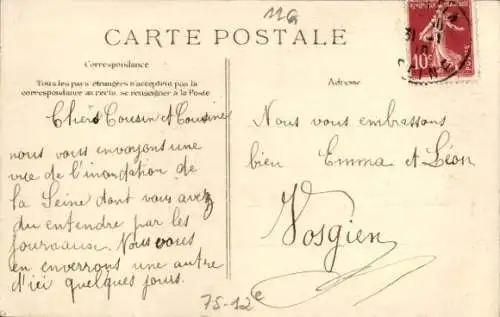 116
CARTE POSTALE
Correspondance
Tous les pays étrangers n'acceptent pas la
correspondance au recto, se renseigner à la Poste
Chers Cousin et Cousine
nous vous envoyons une
vue de l'inondation de
la Seine dont vous avez
du entendre par les
journeause. Nous vous
en enverrons une autre
d'ici quelques jours.
Adresse
Nous vous embrassons
bien Emma et Léon
Vosgien
75-12e
10c